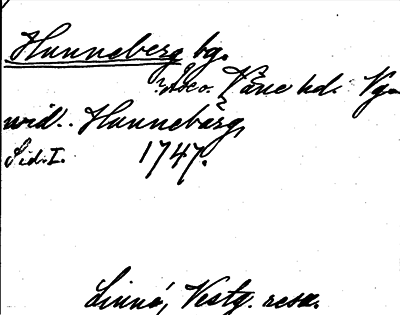 Hunneberg bg.
Väne hd. Vg.
vid. Hunnebärg,
Sid. I. 1747.
Linné, Vestg. resa.